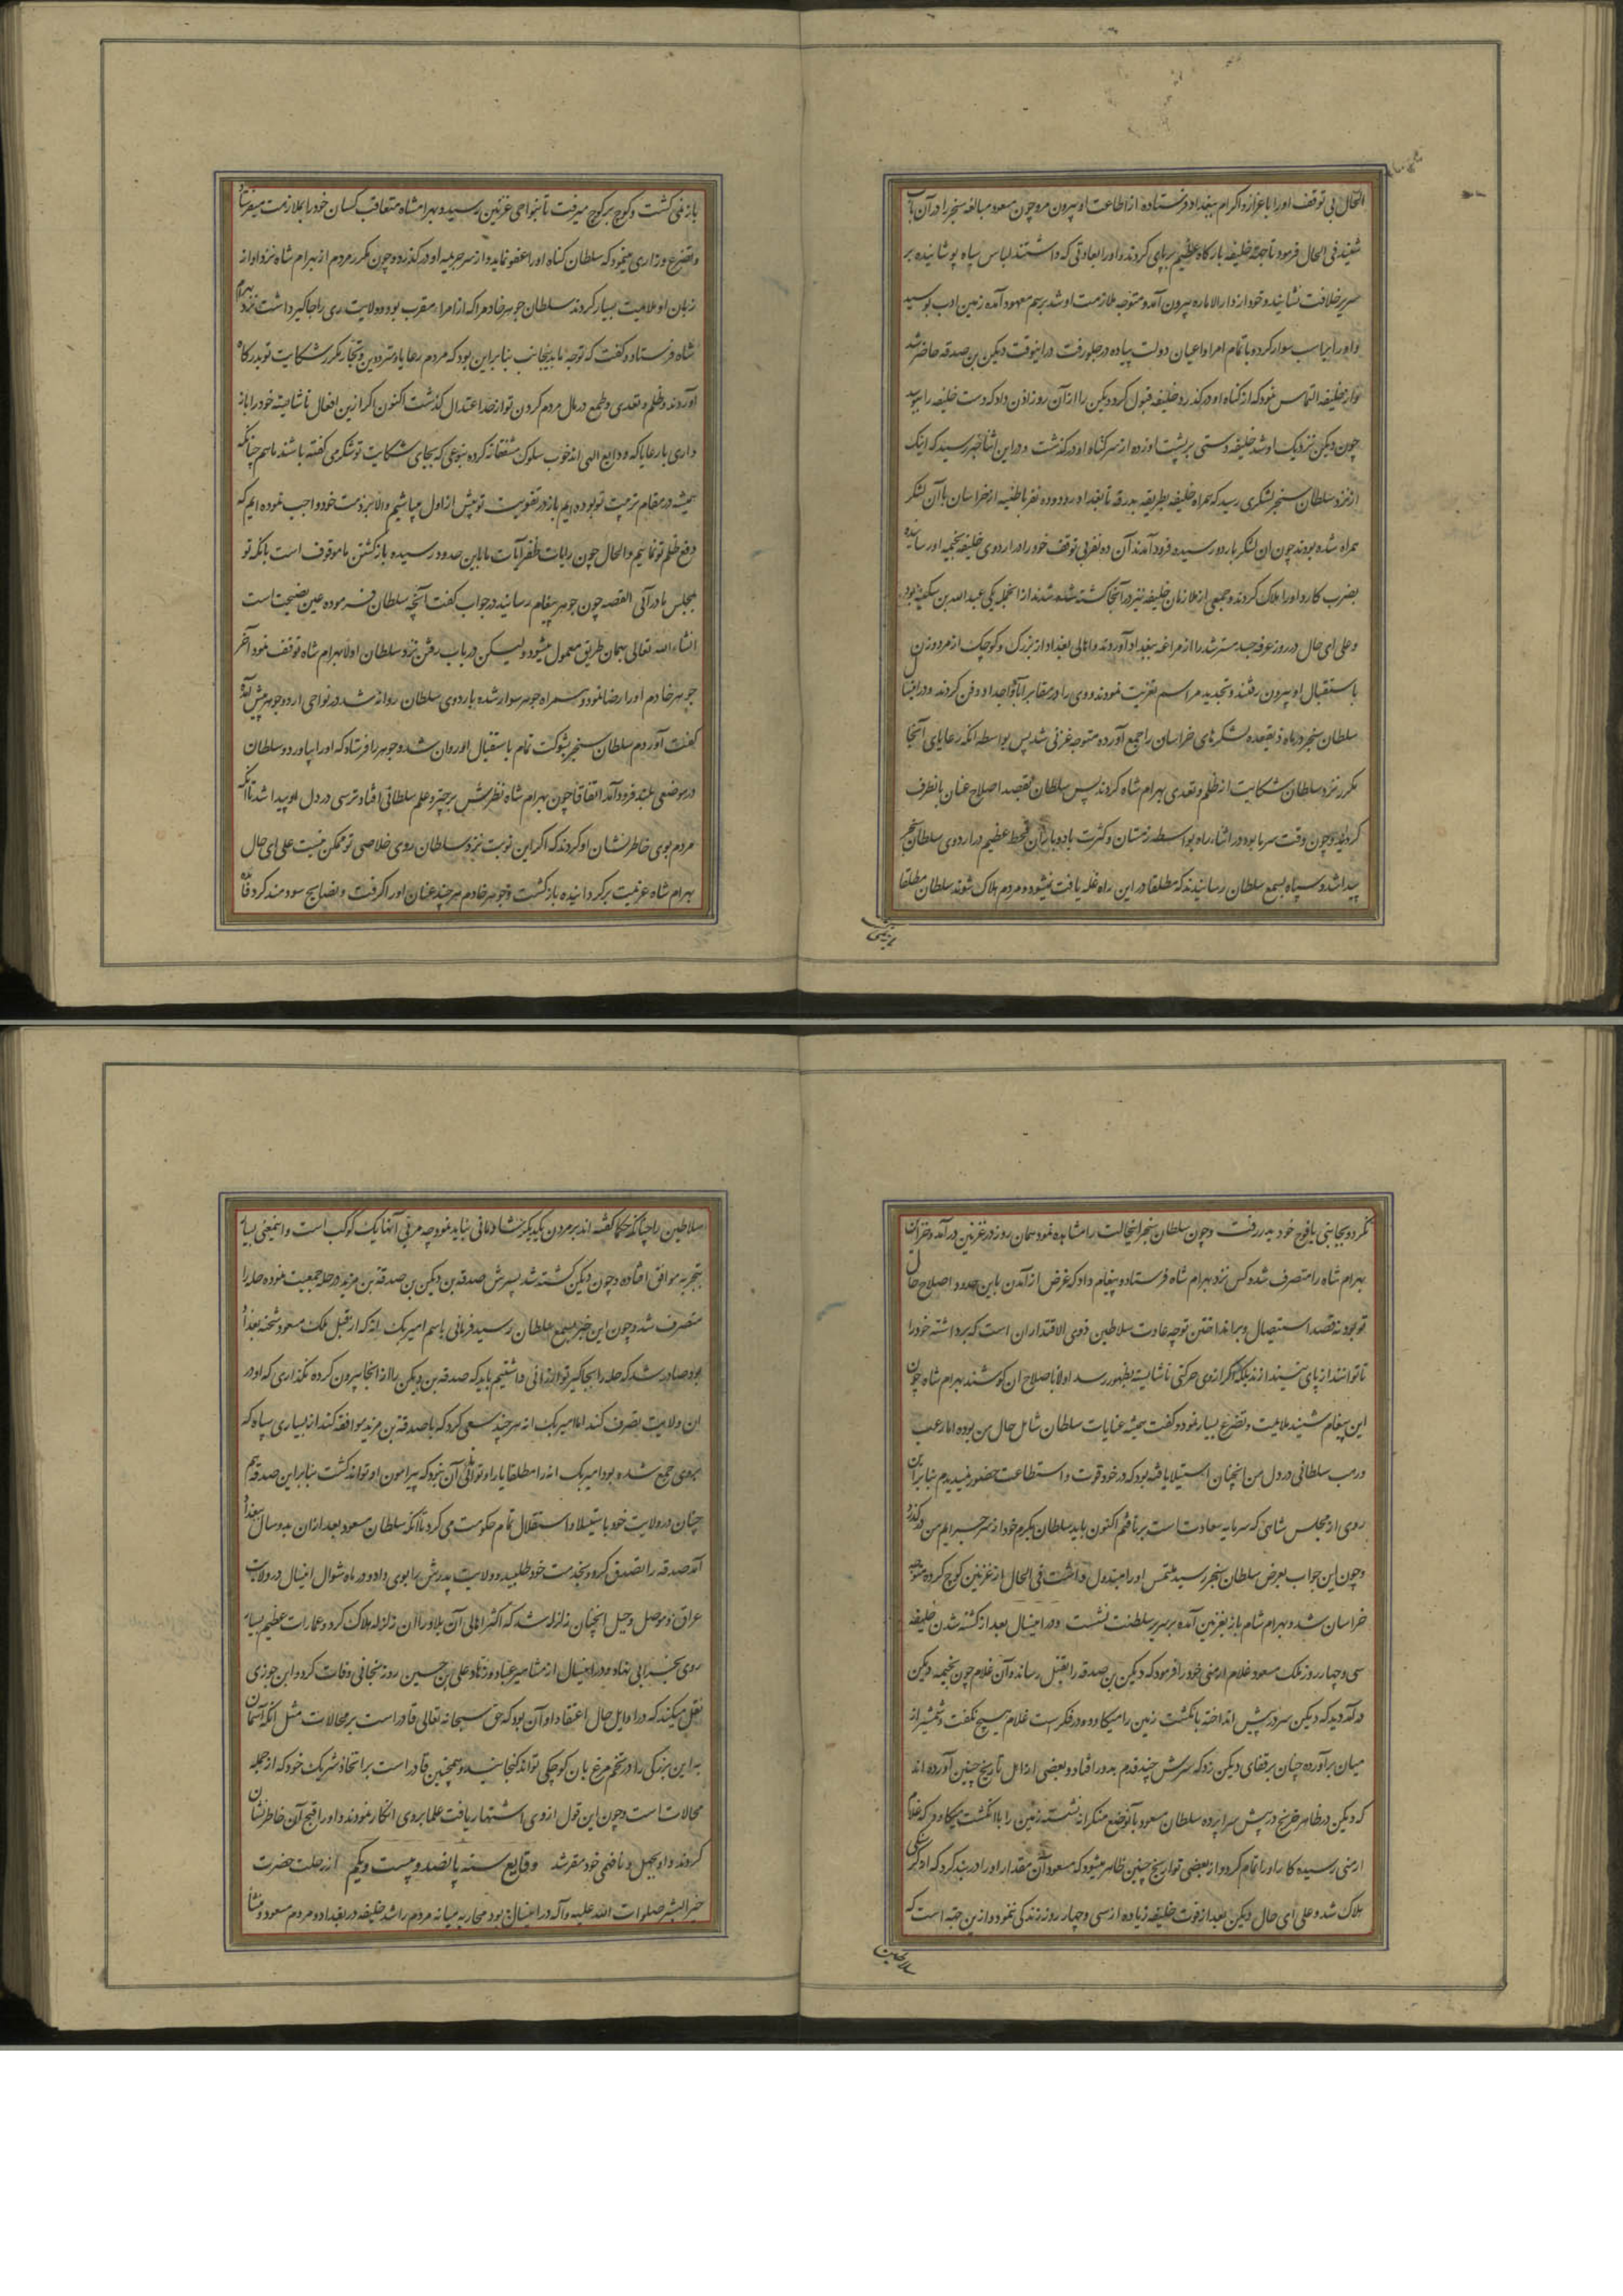 الحال بی توقف اورا باعزاز و اکرام ببغداد فرستاده از اطاعت او بیرون مرو چون مسعود مبالغه سنجر را در آن باب
شنید فی الحال فرمود تا جهة خلیفه بارگاه عظیم بر پای کردند و اورا بعادتی که داشتند لباس سیاه پوشانیده بر
سریر خلافت نشانید و خود از دار الاماره بیرون آمده متوجه ملازمت او شد برسم معهود آمده زمین ادب بوسید
و اورا بر اسب سوار کرده با تمام امرا و اعیان دولت پیاده در جلو رفت در اینوقت دیکن بن صدقه حاضر شد
و از خلیفه التماس نمود که از گناه او درگذرد خلیفه قبول کرد دیکن را از آن روز اذن داد که دست خلیفه را ببوسد
چون دیکن نزدیک او شد خلیفه دستی بر پشت او زده از سر گناه او درگذشت و در این اثنا خبر رسید که اینک
از نزد سلطان سنجر لشکری رسید که همراه خلیفه بطریقه بدرقه تا بغداد رود و ده نفر باطنیه از خراسان با آن لشکر
همراه شده بودند چون ان لشکر باردو رسیده فرود آمدند آن ده نفر بی توقف خود را در اردوی خلیفه بخیمه او رسانیده
بضرب کارد اورا هلاک کردند و جمعی از ملازمان خلیفه نیز در آنجا کشته شدند از انجمله یکی عبد الله بن سکینه بود
و علی ای حال در روز عرفه جسد مسترشد را از مراغه ببغداد آوردند و اهالی بغداد از بزرگ و کوچک از مرد و زن
باستقبال او بیرون رفتند و تجدید مراسم تعزیت نمودند و وی را در مقابر آبا و اجداد دفن کردند و در اینسال
سلطان سنجر در ماه ذیقعده لشکرهای خراسان را جمع آورده متوجه غزنی شد پس بواسطه انکه رعایای آنجا
مکرر نزد سلطان شکایت از ظلم و تعدی بهرام شاه کردند پس سلطان بقصد اصلاح عنان بانطرف
گردانید و چون وقت سرما بود در اثناء راه بواسطه زمستان و کثرت باد و باران قحط عظیم در اردوی سلطان سنجر
پیدا شد و سپاه بسمع سلطان رسانیدند که مطلقا در این راه غله یافت نمیشود و مردم هلاک شوند سلطان مطلقا
باز نمی
باز نمی گشت و کوچ بر کوچ میرفت تا بنواحی غزنین رسید و بهرامشاه متعاقب کسان خود را بملازمت میفرستاد
و تضرع و زاری مینمود که سلطان گناه اورا عفو نماید و از سر جریمه او درگذرد و چون مکرر مردم از بهرام شاه نزد او از
زبان او ملایمت بسیار کردند سلطان جوهر خادم را که از امراء مقرب بود و ولایت ری را جاگیر داشت نزد بهرام
شاه فرستاد و گفت که توجه ما بدینجانب بنا بر این بود که مردم رعایا و مترددین و تجار مکرر شکایت تو بدرگاه
آوردند و ظلم و تعدی و طمع در مال مردم کردن تو از حد اعتدال گذشت اکنون اگر از این افعال ناشایسته خود را باز
داری با رعایا که ودایع الهی اند خوب سلوک مشفقانه کرده بنوعی که بجای شکایت تو شکر می گفته باشند ما هم چنانکه
همیشه در مقام تربیت تو بوده ایم باز در تقویت تو بیش از اول میباشیم والا بر ذمت خود واجب نموده ایم که
دفع ظلم تو نمائیم و الحال چون رایات ظفر آیات ما باین حدود رسیده باز گشتن ما موقوف است بانکه تو
بمجلس ما در آئی القصه چون جوهر پیغام رسانید در جواب گفت آنچه سلطان فرموده عین نصیحت است
انشاء الله تعالی بهمان طریق معمول میشود ولیکن در باب رفتن نزد سلطان اولا بهرام شاه توقف نمود آخر
جوهر خادم اورا رضا نمود و همراه جوهر سوار شده باردوی سلطان روانه شد در نواحی اردو جوهر پیش آمد
گفت آوردم سلطان سنجر بشوکت تمام باستقبال او روان شد و جوهر را فرستاد که اورا بیاورد و سلطان
در موضعی بلند فرود آمد اتفاقا چون بهرام شاه نظرش بر چتر و علم سلطانی افتاد ترسی در دل او پیدا شد تا آنکه
مردم بوی خاطر نشان او کردند که اگر این نوبت نزد سلطان روی خلاصی تو ممکن نیست علی ای حال
بهرام شاه عزیمت برگردانیده باز گشت و جوهر خادم هر چند عنان اورا گرفت و نصایح سودمند کرد فائده
نکرد و بجانبی با فوج خود بدر رفت و چون سلطان سنجر اینحالت را مشاهده نمود همان روز در غزنین در آمد و خزاین
بهرام شاه را متصرف شد و کس نزد بهرام شاه فرستاده پیغام داد که غرض از آمدن باین حدود اصلاح حال
تو بود نه قصد استیصال و بر انداختن تو چه عادت سلاطین ذوی الاقتداران است که برداشته خود را
تا توانند از پای نیندازند بلکه اگر از وی حرکتی ناشایسته بظهور رسد اولا باصلاح ان کوشند بهرام شاه چون
این پیغام شنید ملایمت و تضرع بسیار نمود و گفت همیشه عنایات سلطان شامل حال من بوده اما رعب
و رهب سلطانی در دل من انچنان استیلا یافته بود که در خود قوت و استطاعت حضور ندیدم بنا بر این
روی از مجلس شاهی که سرمایه سعادت است بر تافتم اکنون باید سلطان بکرم خود از سر جرایم من درگذرد
و چون این جواب بعرض سلطان سنجر رسید ملتمس اورا مبذول داشت فی الحال از غزنین کوچ کرده متوجه
خراسان شد و بهرام شاه باز بغزنین آمده بر سریر سلطنت نشست و در اینسال بعد از کشته شدن خلیفه
سی و چهار روز ملک مسعود غلام ارمنی خود را فرمود که دیکن بن صدقه را بقتل رساند و آن غلام چون بخیمه دیکن
در آمد دید که دیکن سر در پیش انداخته بانگشت زمین را میکاود و در فکر است غلام هیچ نگفت و شمشیر از
میان برآورده چنان بر قفای دیکن زد که سرش چند قدم بدور افتاد و بعضی از اهل تاریخ چنین آورده اند
که دیکن در ظاهر خرنج در پیش سراپرده سلطان مسعود بآنوضع منکر از نشسته زمین را با انگشت میکاود که غلام
ارمنی رسیده کار اورا تمام کرد و از بعضی تواریخ چنین ظاهر میشود که مسعود آن مقدار اورا در بند کرد که از گرسنگی
هلاک شد و علی ای حال دیکن بعد از فوت خلیفه زیاده از سی و چهار روز زندگی ننمود و از ین جهة است که
سلاطین
سلاطین را چنانکه حکما گفته اند بر مردن یکدیگر شادمانی نباید نمود چه مربی آنها یک کوکب است و اینمعنی بسیار
بتجربه موافق افتاده و چون دیکن کشته شد پسرش صدقه بن دیکن بن صدقة بن مزید در حله جمعیت نموده حله را
متصرف شد و چون این خبر بسمع سلطان رسید فرمانی باسم امیر بک ابه که از قبل ملک مسعود شحنه بغداد
بود صادر شد که حله را بجاگیر تو ارزانی داشتیم باید که صدقه بن دیکن را از انجا بیرون کرده نگذاری که او در
ان ولایت تصرف کند اما امیر بک ابه هر چند سعی کرد که با صدقة بن مزید موافقه کند از بسیاری سپاه که
بروی جمع شده بود امیر بک ابه را مطلقا یارا و توانائی آن نبود که پیرامون او تواند گشت بنا بر این صدقه هم
چنان در ولایت خود باستیلا و استقلال تمام حکومت می کرد تا آنکه سلطان مسعود بعد از ان بدو سال ببغداد
آمد صدقه را تصدق کرده بخدمت خود طلبیده ولایت پدرش را بوی داد و در ماه شوال اینسال در ولایت
عراق و موصل و جبل انچنان زلزله شد که اکثر اهالی آن بلاد را ان زلزله هلاک کرد و عمارات عظیم بسیار
روی بخرابی نهاد و در اینسال از مشاهیر عباد و زهاد علی بن حسین روز بخانی وفات کرد و ابن جوزی
نقل میکند که در اوایل حال اعتقاد او آن بود که حق سبحانه تعالی قادر است بر محالات مثل انکه آسمان
به این بزرگی را در تخم مرغ بان کوچکی تواند گنجانید و همچنین قادر است بر اتخاذ شریک خود که از جمله
محالات است و چون این قول از وی اشتهار یافت علما بروی انکار نمودند و اورا قبح آن خاطر نشان
کردند و او بجهل و نافهمی خود مقر شد وقایع سنه پانصد و بیست و یکم از رحلت حضرت
خیر البشر صلوات الله علیه و آله در اینسال بود محاربه میانه مردم راشد خلیفه در بغداد و مردم مسعود و منشأ